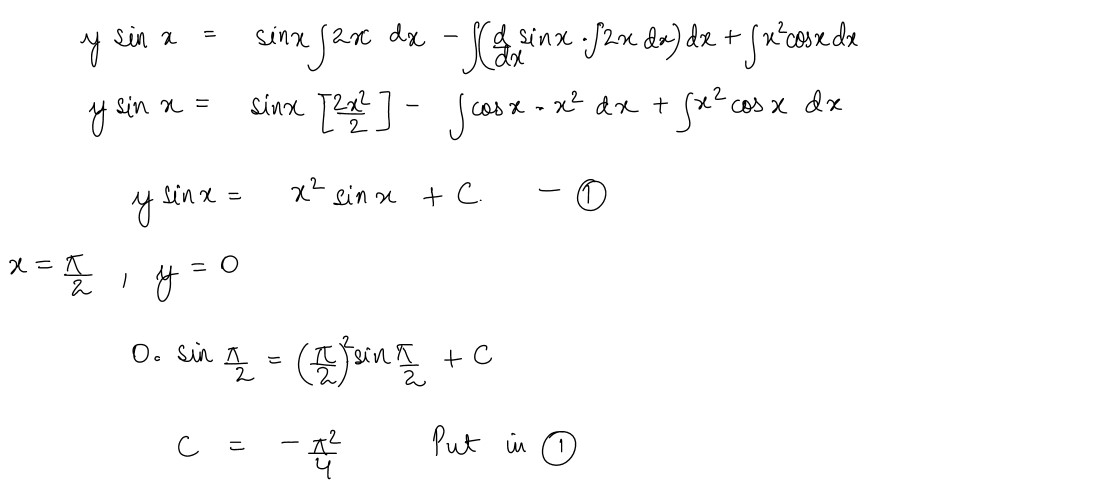 y sin x = sinx ∫2x dx - ∫(d/dx sinx · ∫2x dx) dx + ∫x² cosx dx
y sin x = sinx [2x²/2] - ∫cos x · x² dx + ∫x² cos x dx
y sinx = x² sinx + C. - ①
x = π/2 , y = 0
0. sin π/2 = (π/2)² sin π/2 + C
C = - π²/4 Put in ①